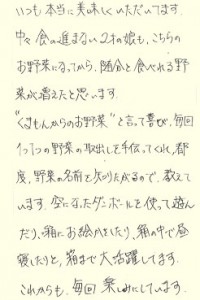 いつも本当に美味しくいただいてます。
中々食の進まない2才の娘も、こちらの
お野菜になってから、随分と食べれる野
菜が増えたと思います。
"くまもんからのお野菜"と言って喜び、毎回
1つ1つの野菜の取出しを手伝ってくれ、都
度、野菜の名前を知りたがるので、教えて
います。空になったダンボールを使って遊ん
だり、箱にお絵かきしたり、箱の中で昼
寝したりと、箱まで大活躍してます。
これからも、毎回楽しみにしています。